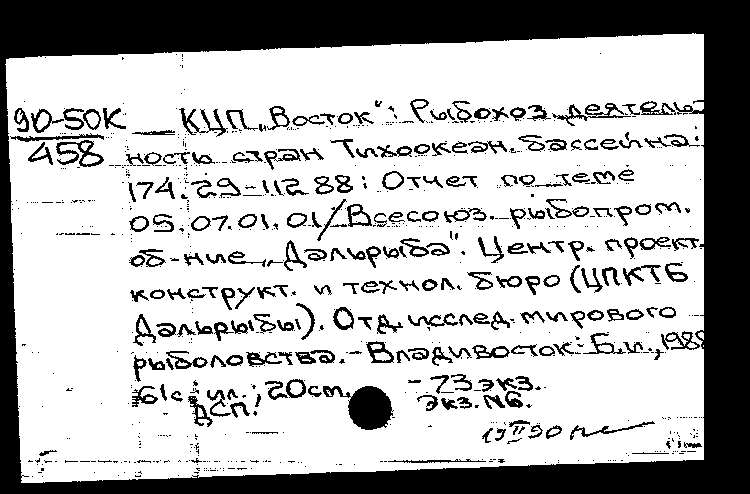 90-50К
458
КЦП „Восток": Рыбохоз. деятель-
ность стран Тихоокеан. бассейна:
174.29-112 88: Отчет по теме
05.07.01.01/Всесоюз. рыбопром.
об-ние „Дальрыба". Центр. проект.
конструкт. и технол. бюро (ЦПКТБ
Дальрыбы). Отд. исслед. мирового
рыболовства.-Владивосток: Б.и., 1988
61с.: ил.; 20cm. - 73 экз.
ДСП. Экз. N6.